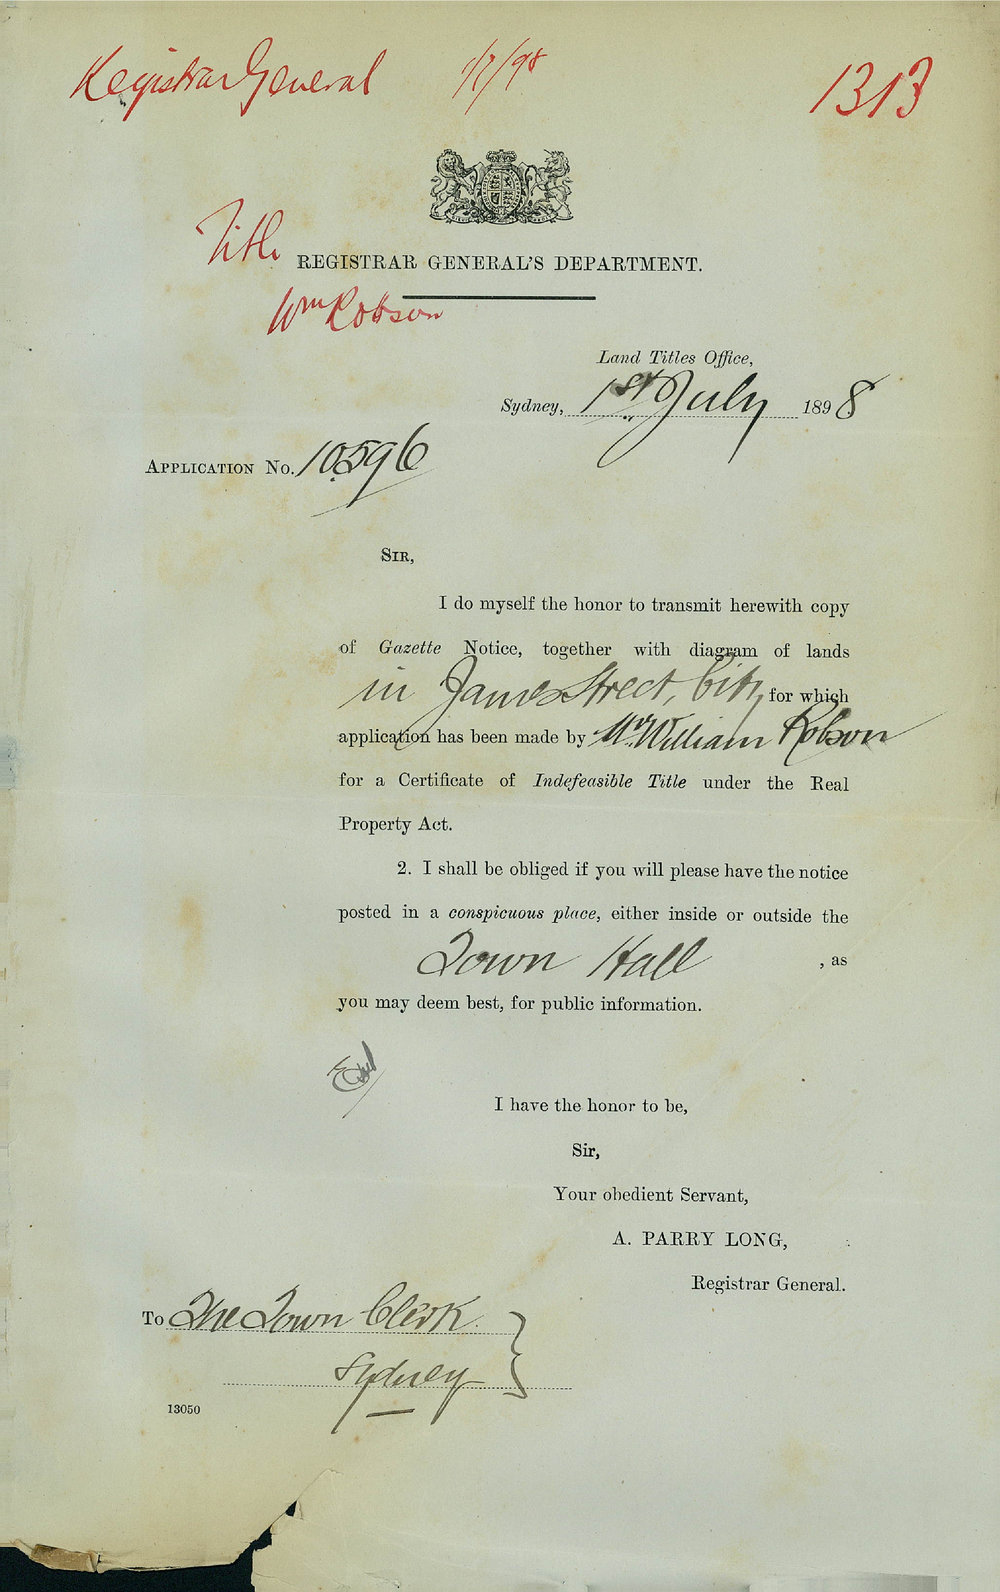 Registrar General 1/7/98 1313
Title
REGISTRAR GENERAL'S DEPARTMENT.
Wm Robson
Land Titles Office,
Sydney, 1st July 1898
APPLICATION No. 10596
SIR,
I do myself the honor to transmit herewith copy
of Gazette Notice, together with diagram of lands
in James Street, City for which
application has been made by Mr. William Robson
for a Certificate of Indefeasible Title under the Real
Property Act.
2. I shall be obliged if you will please have the notice
posted in a conspicuous place, either inside or outside the
Town Hall , as
you may deem best, for public information.
I have the honor to be,
Sir,
Your obedient Servant,
A. PARRY LONG,
Registrar General.
To The Town Clerk
Sydney
13050